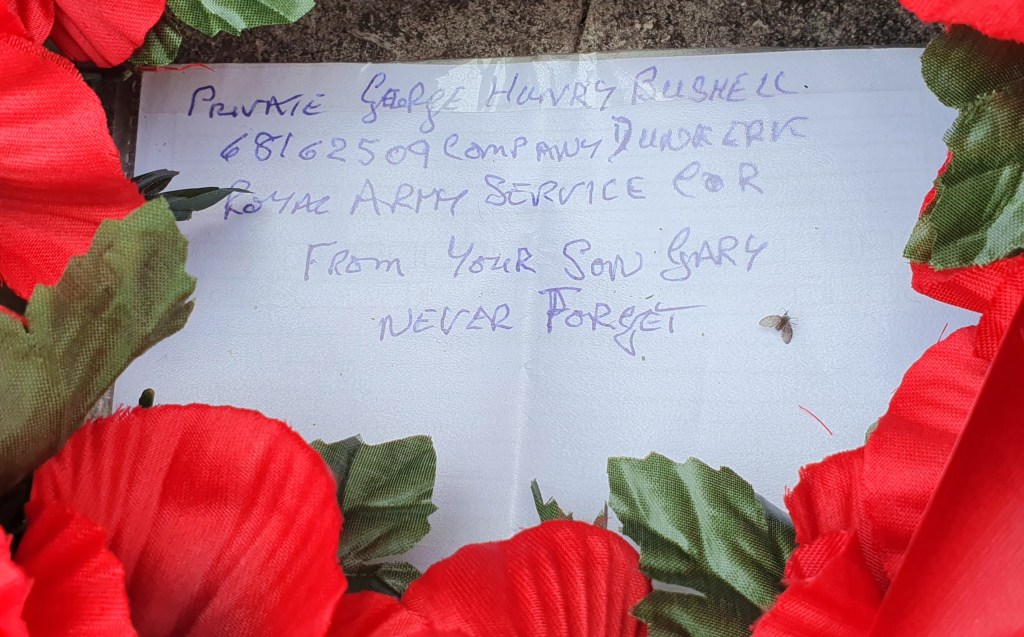 PRIVATE GEORGE HENRY BUSHELL
68162509 COMPANY DUNKERK
ROYAL ARMY SERVICE COR
FROM YOUR SON GARY
NEVER FORGET